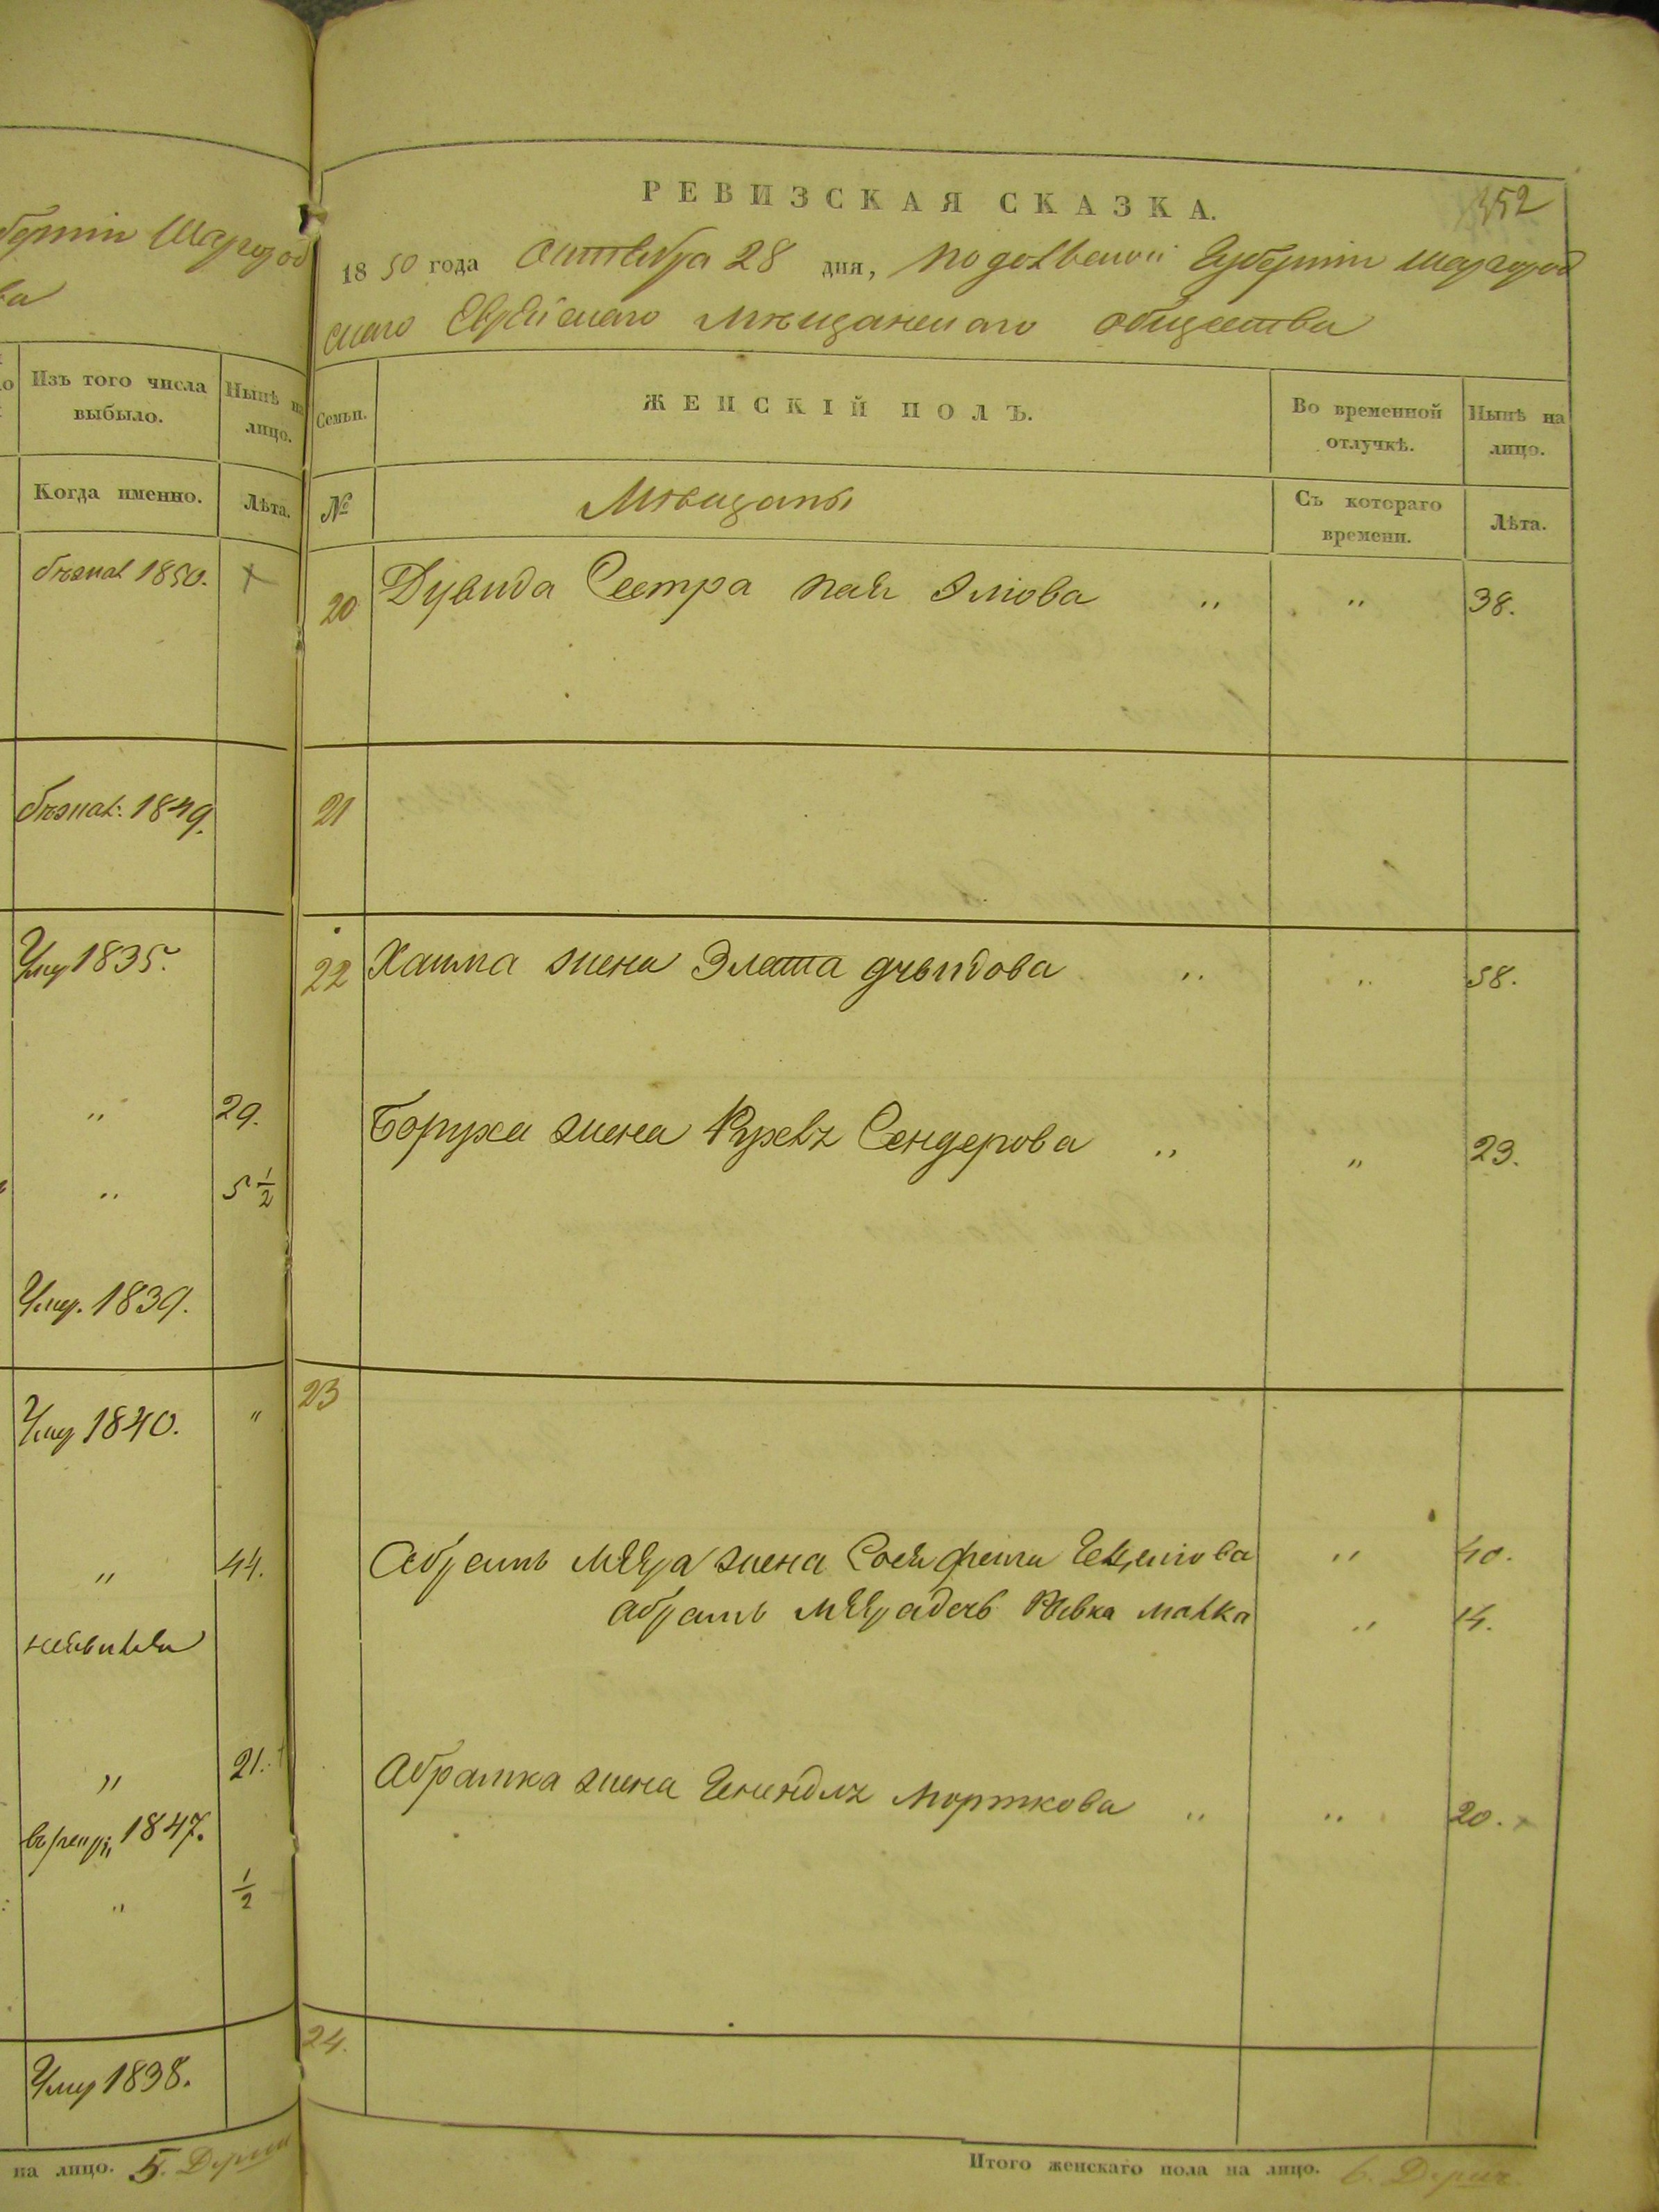 бернiи Шаргород
ва
Изъ того числа выбыло.
Нынѣ на лицо.
Когда именно.
Лѣта.
1850.
1849.
Умер 1835.
" 29.
" 5 1/2
Умер. 1839.
Умер 1840. "
" 44.
" 21.
1847.
" 1/2
Умер 1838.
на лицо. 5.
РЕВИЗСКАЯ СКАЗКА.
352
1850 года Октября 28 дня, Подольской Губернiи Шаргород
скаго Еврейскаго Мѣщанскаго общества
Семьи.
ЖЕНСКІЙ ПОЛЪ.
Во временной отлучкѣ.
Нынѣ на лицо.
№
Мѣщаны
Съ котораго времени.
Лѣта.
20 Дувида Сестра Пая " " 38.
21
22 Хаима жена Элета дувидова " " 58.
Боруха жена Рухля Сендерова " " 23.
23
Абрамъ Меера жена Сося фейга " 40.
Абрамъ Меера дочь Ривка малка " 14.
Абрамка жена Гениндля Морткова " " 20.
24.
Итого женскаго пола на лицо. 6.